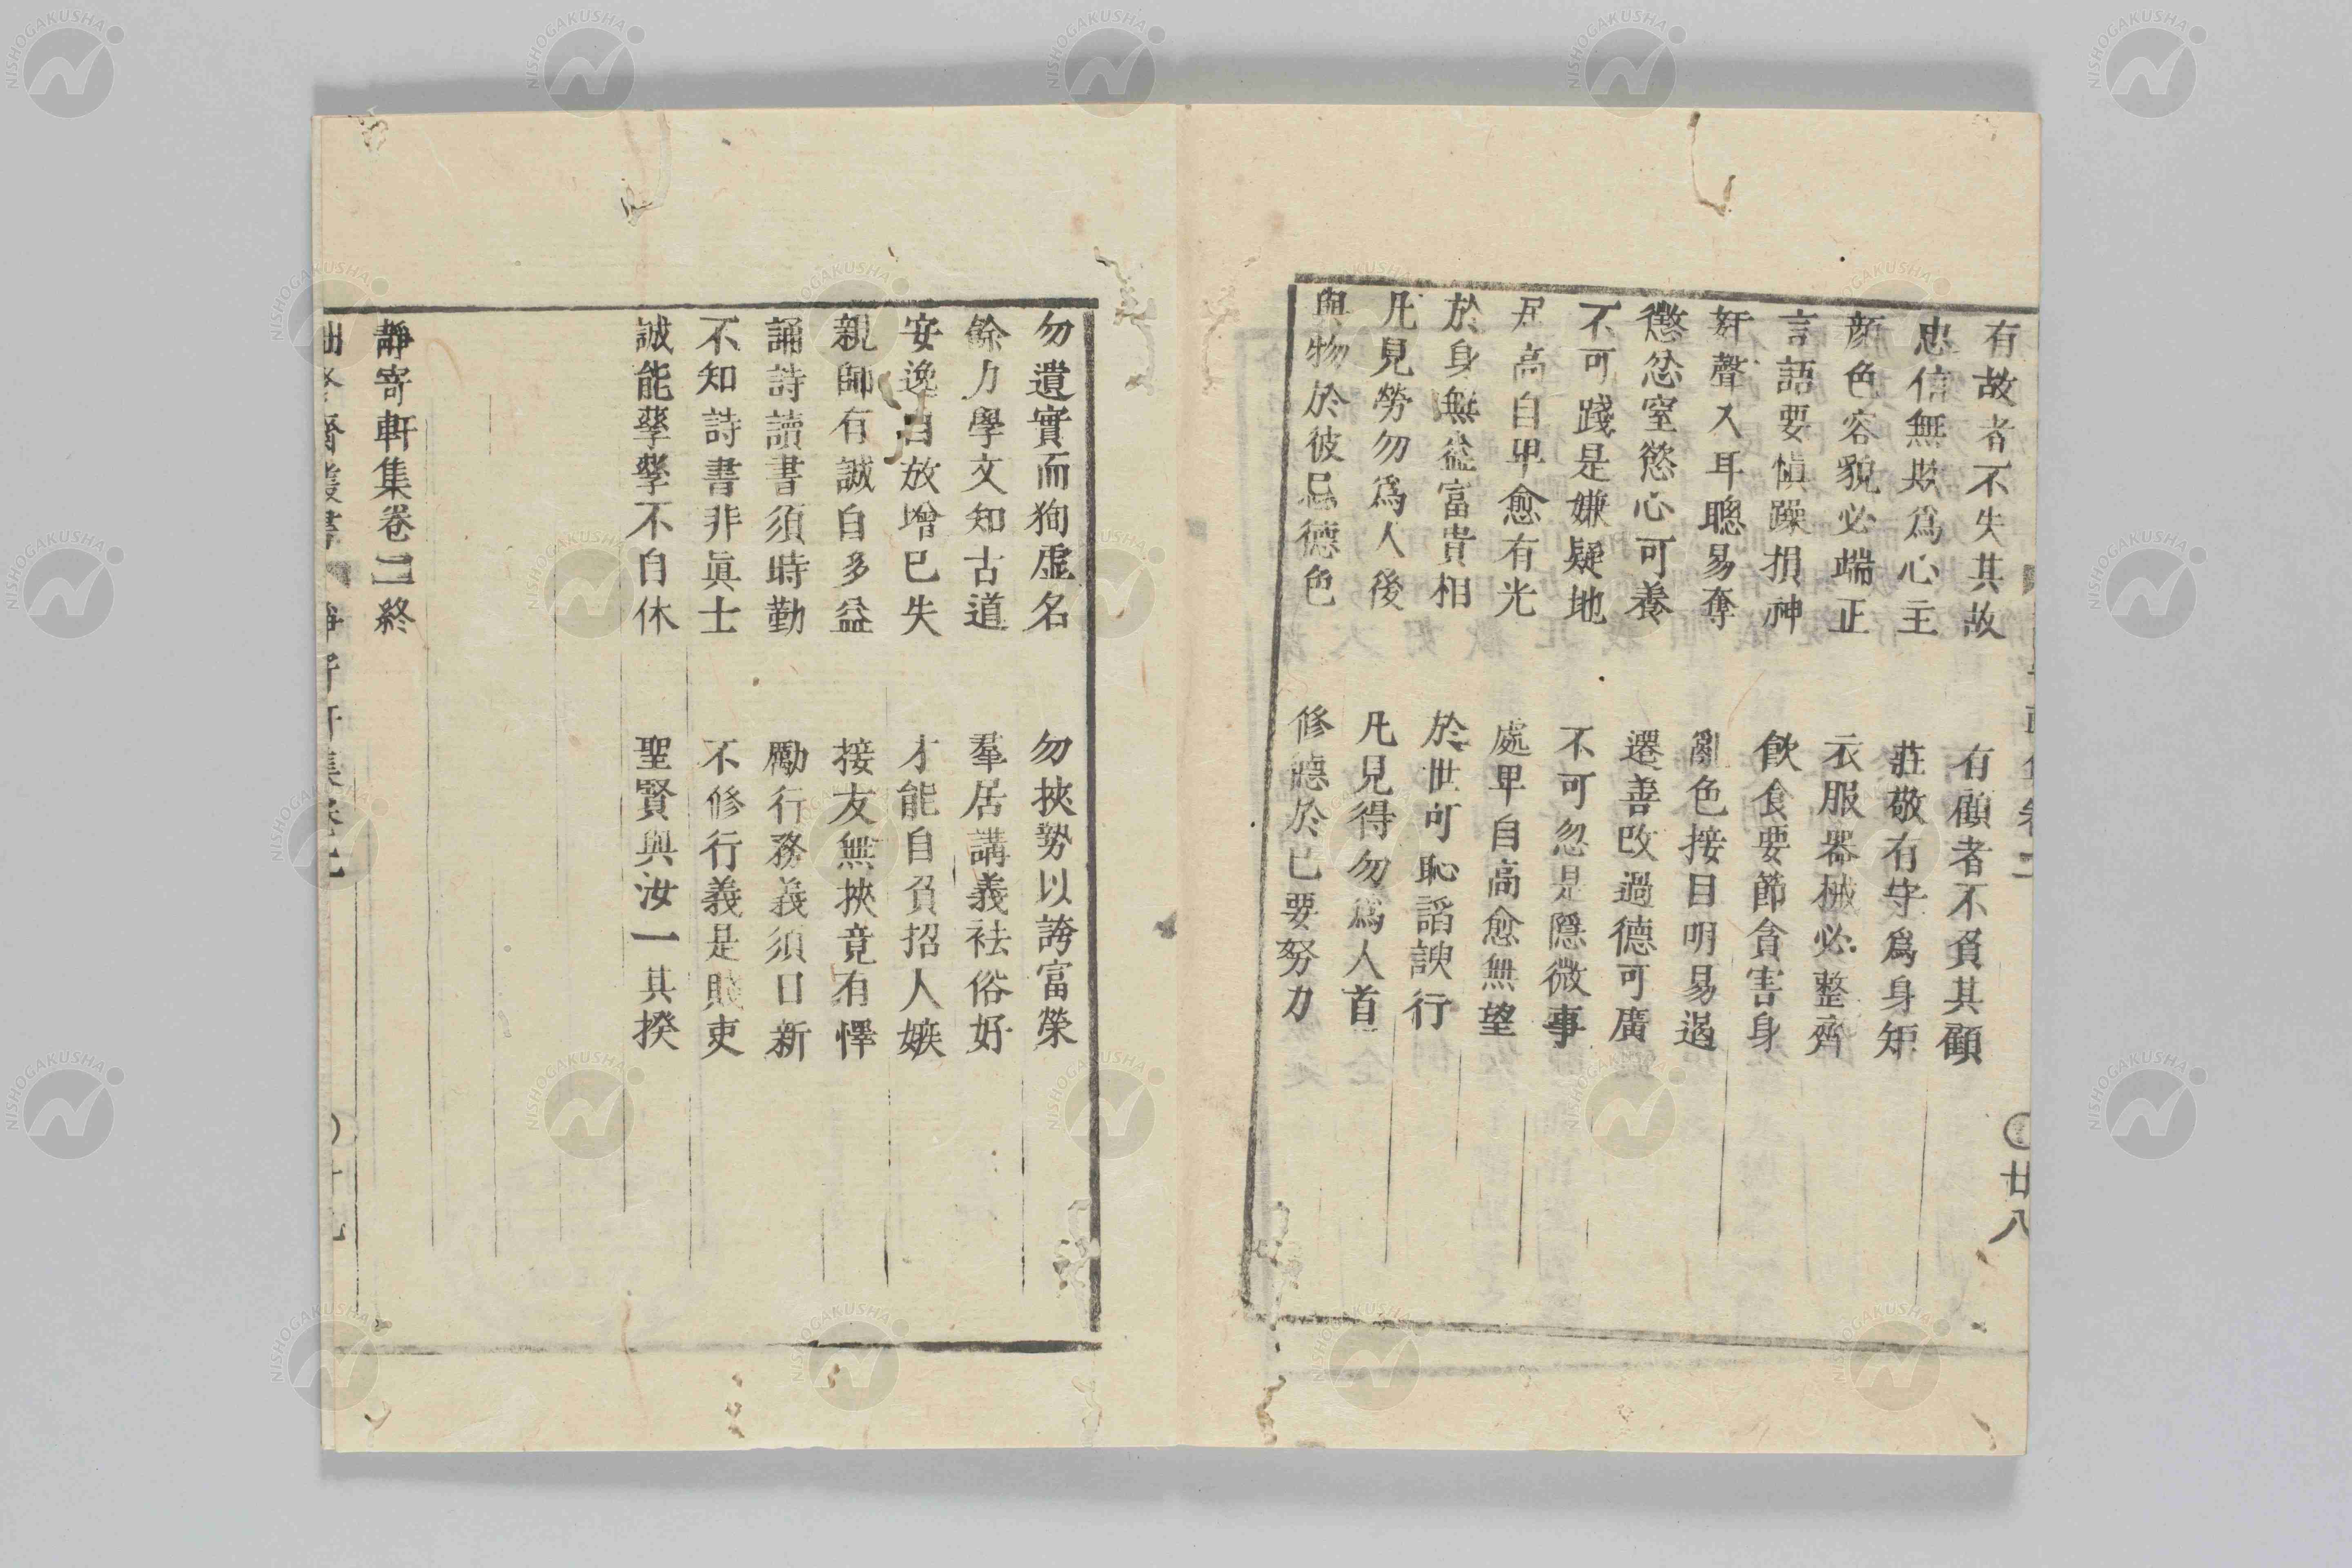 有故者不失其故　有顧者不負其顧
忠信無欺爲心主　莊敬有守爲身矩
顔色容貌必端正　衣服器械必整齊
言語要愼躁損神　飲食要節貪害身
姧聲入耳聰易奪　亂色接目明易遏
懲忿窒慾心可養　遷善改過德可廣
不可踐是嫌疑地　不可忽是隱微事
居高自卑愈有光　處卑自高愈無望
於身無益富貴相　於世可恥謟諛行
凡見勞勿爲人後　凡見得勿爲人首
與物於彼忌德色　修德於已要努力
廿八
勿遺實而狥虛名　勿挾勢以誇富榮
餘力學文知古道　羣居講義袪俗好
安逸自放增已失　才能自負招人嫉
親師有誠自多益　接友無挾竟有懌
誦詩讀書須時勤　勵行務義須日新
不知詩書非眞士　不修行義是賤吏
誠能孳孳不自休　聖賢與汝一其揆
靜寄軒集卷二終
NISHOGAKUSHA